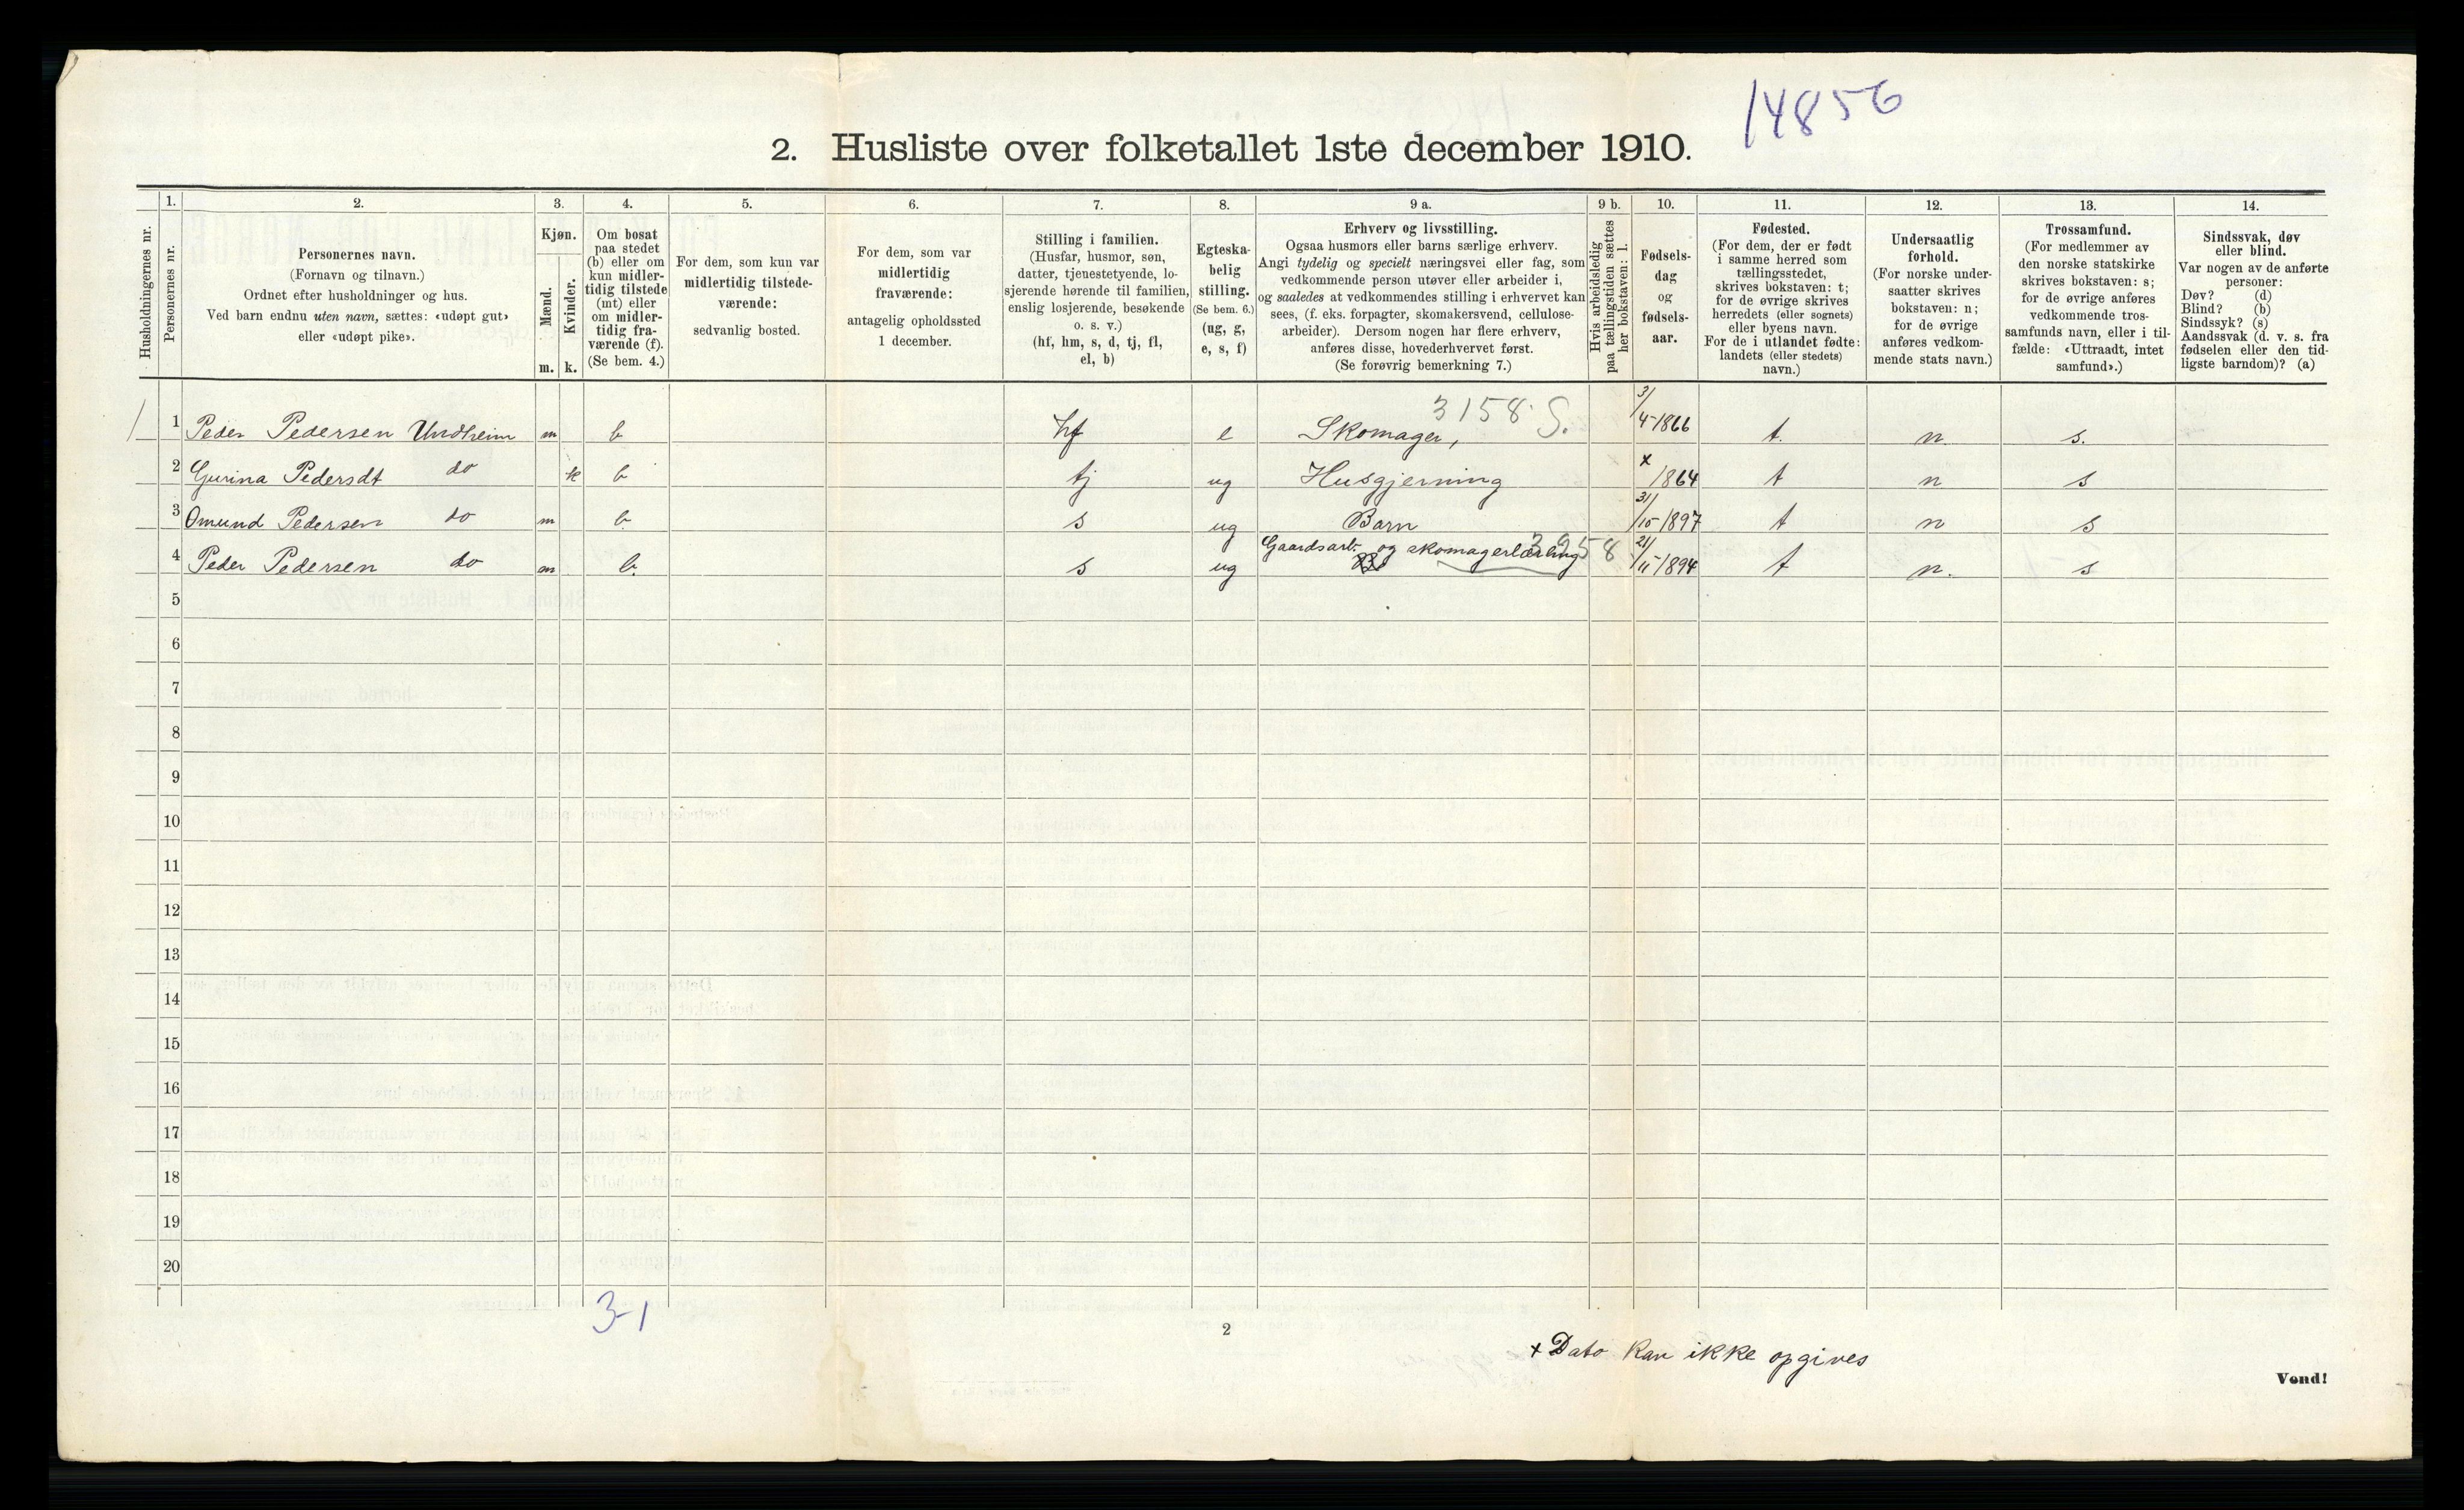 14856
2. Husliste over folketallet 1ste december 1910.
Husholdningernes nr.
1. Personernes nr.
2. Personernes navn.
(Fornavn og tilnavn.)
Ordnet efter husholdninger og hus.
Ved barn endnu uten navn, sættes: «udøpt gut»
eller «udøpt pike».
3. Kjøn.
Mænd. Kvinder.
m. k.
4. Om bosat
paa stedet
(b) eller om
kun midler-
tidig tilstede
(mt) eller
om midler-
tidig fra-
værende (f).
(Se bem. 4.)
5. For dem, som kun var
midlertidig tilstede-
værende:
sedvanlig bosted.
6. For dem, som var
midlertidig
fraværende:
antagelig opholdssted
1 december.
7. Stilling i familien.
(Husfar, husmor, søn,
datter, tjenestetyende, lo-
sjerende hørende til familien,
enslig losjerende, besøkende
o. s. v.)
(hf, hm, s, d, tj, fl,
el, b)
8. Egteska-
belig
stilling.
(Se bem. 6.)
(ug, g,
e, s, f)
9 a. Erhverv og livsstilling.
Ogsaa husmors eller barns særlige erhverv.
Angi tydelig og specielt næringsvei eller fag, som
vedkommende person utøver eller arbeider i,
og saaledes at vedkommendes stilling i erhvervet kan
sees, (f. eks. forpagter, skomakersvend, cellulose-
arbeider). Dersom nogen har flere erhverv,
anføres disse, hovederhvervet først.
(Se forøvrig bemerkning 7.)
9 b. Hvis arbeidsledig
paa tællingstiden sættes
her bokstaven: l.
10. Fødsels-
dag
og
fødsels-
aar.
11. Fødested.
(For dem, der er født
i samme herred som
tællingsstedet,
skrives bokstaven: t;
for de øvrige skrives
herredets (eller sognets)
eller byens navn.
For de i utlandet fødte:
landets (eller stedets)
navn.)
12. Undersaatlig
forhold.
(For norske under-
saatter skrives
bokstaven: n;
for de øvrige
anføres vedkom-
mende stats navn.)
13. Trossamfund.
(For medlemmer av
den norske statskirke
skrives bokstaven: s;
for de øvrige anføres
vedkommende tros-
samfunds navn, eller i til-
fælde: «Uttraadt, intet
samfund».)
14. Sindssvak, døv
eller blind.
Var nogen av de anførte
personer:
Døv? (d)
Blind? (b)
Sindssyk? (s)
Aandssvak (d. v. s. fra
fødselen eller den tid-
ligste barndom)? (a)
3158 S.
1 1 Peder Pedersen Undheim m b hf e Skomager, 3/4-1866 t. n. s.
2 Gurina Pedersdt do k b tj ug Husgjerning x/1864 t n s
3 Omund Pedersen do m b s ug Barn 31/10-1897 t n s
4 Peder Pedersen do m b. s ug Gaardsarb. og skomagerlærling 21/11-1894 t n. s
5
6
7
8
9
10
11
12
13
14
15
16
17
18
19
20
3-1
2
x Dato kan ikke opgives
Vend!